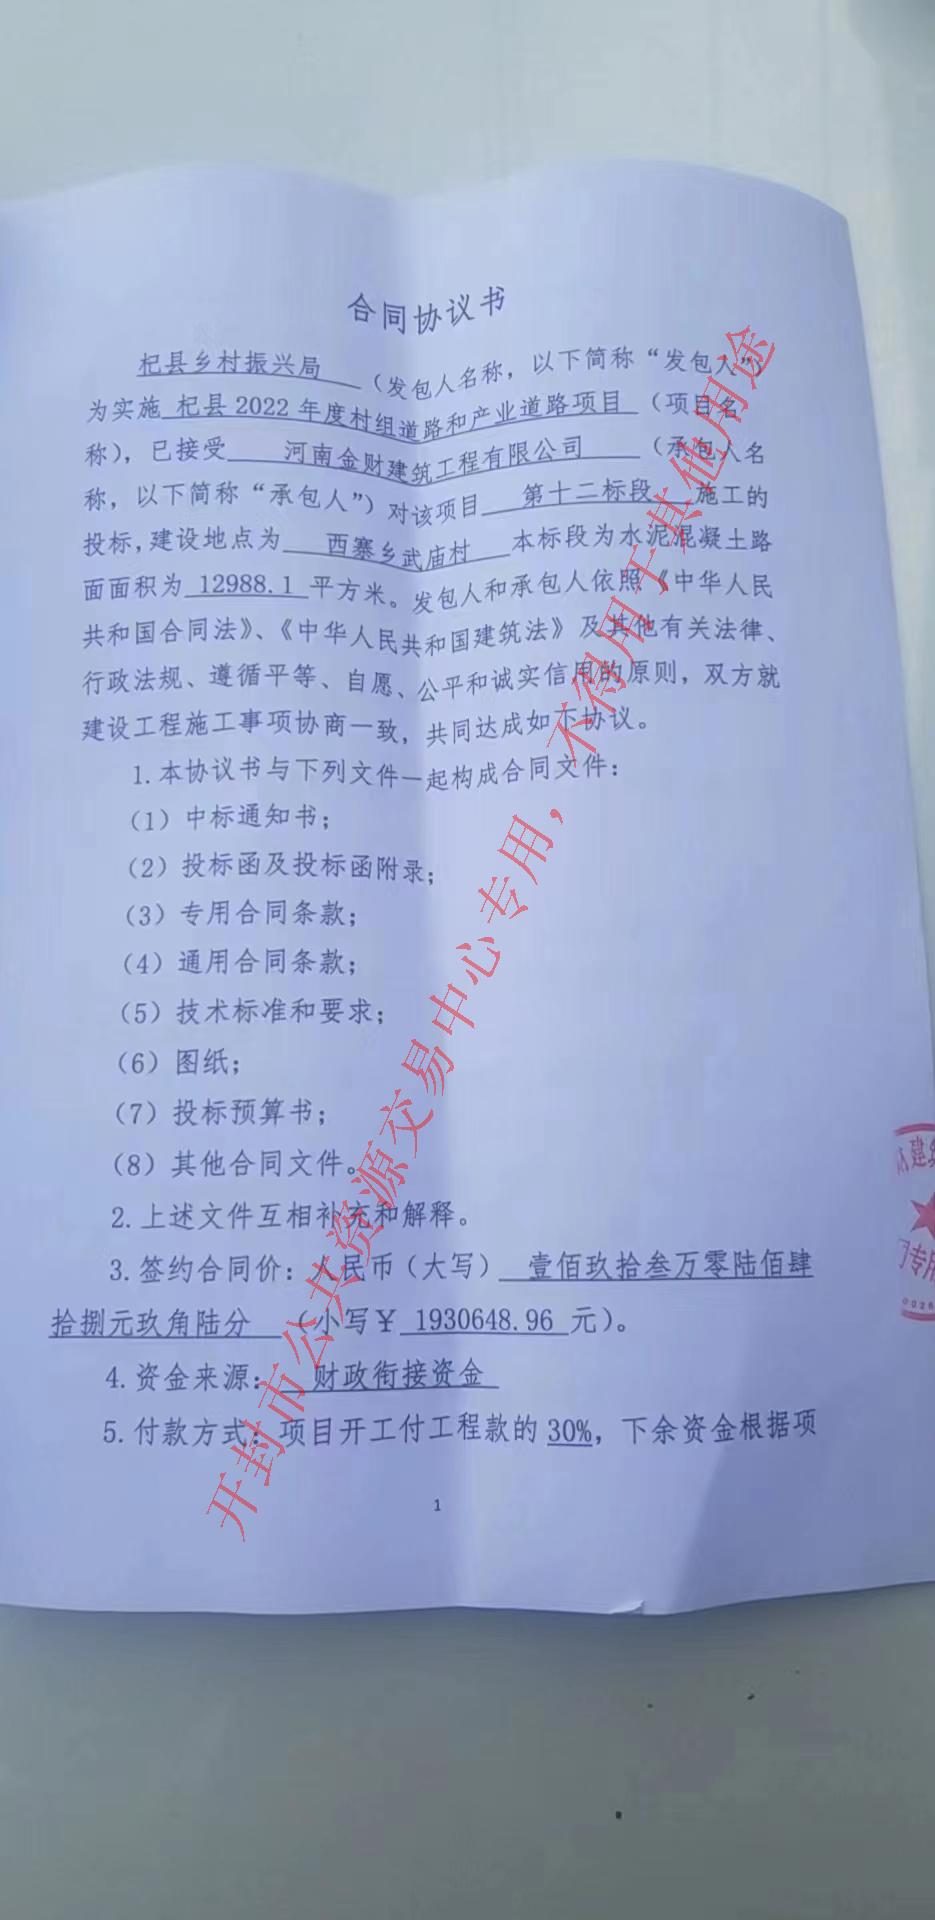 合同协议书
杞县乡村振兴局（发包人名称，以下简称“发包人”）
为实施 杞县 2022 年度村组道路和产业道路项目（项目名
称），已接受 河南金财建筑工程有限公司 （承包人名
称，以下简称“承包人”）对该项目 第十二标段 施工的
投标,建设地点为 西寨乡武庙村 本标段为水泥混凝土路
面面积为 12988.1 平方米。发包人和承包人依照《中华人民
共和国合同法》、《中华人民共和国建筑法》及其他有关法律、
行政法规、遵循平等、自愿、公平和诚实信用的原则，双方就
建设工程施工事项协商一致，共同达成如下协议。
1.本协议书与下列文件一起构成合同文件：
（1）中标通知书；
（2）投标函及投标函附录；
（3）专用合同条款；
（4）通用合同条款；
（5）技术标准和要求；
（6）图纸；
（7）投标预算书；
（8）其他合同文件。
2.上述文件互相补充和解释。
3.签约合同价：人民币（大写） 壹佰玖拾叁万零陆佰肆
拾捌元玖角陆分 （小写￥ 1930648.96 元）。
4.资金来源： 财政衔接资金
5.付款方式：项目开工付工程款的 30%，下余资金根据项
1
开封市公共资源交易中心专用，不得用于其他用途
建
专用
0026